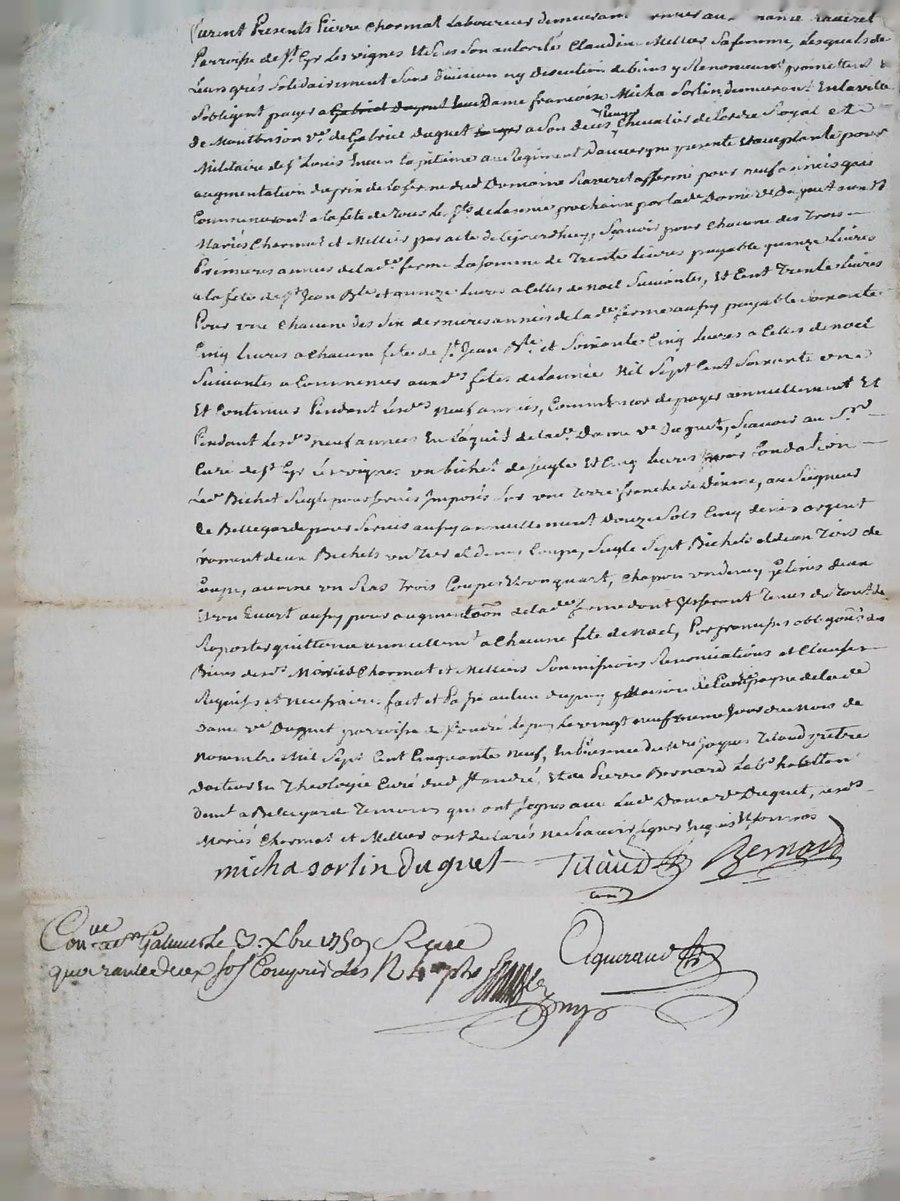 furent Presents Pierre Chermat Laboureur demeurant
Parroisse de St Cyr Les vignes Et de Son autorités Claudine Mellier Sa femme, Lesquels de
Leurs grés Solidairement Sans division ny discution de biens y Renonceant promettent &
Sobligent payer a Gabriel Duguet Dame francoise Micha Sorlin demeurant En la ville
de Montbrison ve de Gabriel Duguet a Son deces vivant Chevalier de Lordre Royal et
Militaire de St Louis ancien Capitaine au Regiment Dauvergne presente et acceptante pour
augmentation du prix de la ferme dud Domaine affermé pour neuf années qui
Commenceront a la fete de Tous Les Sts de Lannée prochaine par lade Dame ve Duguet aux dt
Mariés Chermat et Mellier par acte de Cejourdhuy, Scavoir pour Chacune des Trois
Premieres années de lade ferme La somme de Trente Livres payable quinze Livres
a la fete de St Jean Bte et quinze Livres a Celles de noel Suivantes, Et Cent Trente Livres
Pour une Chacune des Six dernieres années de lade ferme aussy payable Soixante
Cinq Livres a Chacune fete de St Jean Bte et Soixante Cinq Livres a Celles de noel
Suivantes a Commencer auxds fetes de Lannée Mil Sept Cent Soixante une
Et Continuer Pendant lesds neuf années, Comme encor de payer annuellement Et
Pendant lesds neuf années En Laquit de lade Dame ve Duguet, Scavoir au Sr
Curé de St Cyr Les vignes un bichet de Seigle Et Cinq Livres pour fondation
Led Bichet Seigle pour Servis Imposés Sur une Terre franche de Disme, au Seigneur
de Bellegarde pour Servis aussy annuellement Douze Sols Cinq deniers argent
froment deux Bichets un Tier et demy Coupe, Seigle Sept Bichets et deux Tiers de
Coupe, avoine un Ras Trois Coupes Et un quart, Chapon un demy gelines deux
Et un Quart aussy pour augmentaon de lade ferme dont Ils Seront Tenus de
Raporter quittance annuellemt a Chacune fete de Noel, Par promesses obligaons des
Biens desds Mariés Chermat et Mellier Soumissions Renonciations et Clauses
Requises et necessaires. fait et Passé au lieu Maison de Campagne de lade
Dame ve Duguet parroisse de St André Lepuy Le vingt neufvieme Jour du Mois de
Novembre Mil Sept Cent Cinquante Neuf, En presence de Mre Jaques Titaud pretre
docteur En Theologie Curé dud St andré, Et de Pierre Bernard Labr habittant
demt a Bellegard Temoins qui ont Signés avec Lade Dame ve Duguet, Lesds
Mariés Chermat et Mellier ont declarés ne Scavoir Signer
micha sorlin Duguet Titaud Bernard
curé
Conlle a St Galmier Le 3. Xbre 1759 Recu
quarante deux Sols Compris Les